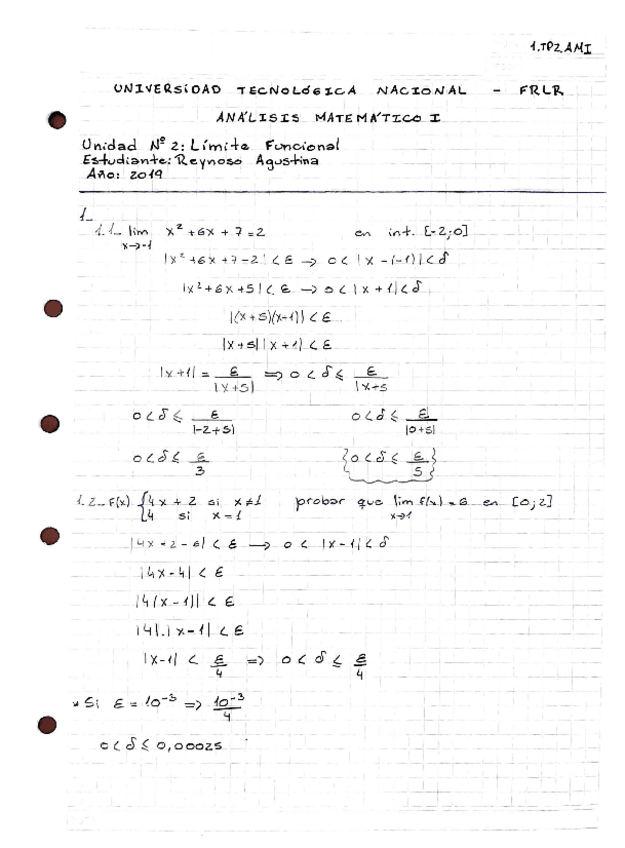 1.TP2.AMI
UNIVERSIDAD TECNOLÓGICA NACIONAL - FRLR
ANÁLISIS MATEMÁTICO I
Unidad Nº 2: Límite Funcional
Estudiante: Reynoso Agustina
Año: 2019
1_
1.1_ lim x→-1 x² + 6x + 7 = 2 en int. [-2;0]
|x² + 6x + 7 - 2| < ε → 0 < |x - (-1)| < δ
|x² + 6x + 5| < ε → 0 < |x + 1| < δ
|(x+5)(x-1)| < ε
|x+5| |x+1| < ε
|x+1| = ε/|x+5| ⇒ 0 < δ ≤ ε/|x+5
0 < δ ≤ ε/|-2+5| 0 < δ ≤ ε/|0+5|
0 < δ ≤ ε/3 {0 < δ ≤ ε/5}
1.2_ F(x) {4x + 2 si x≠1 probar que lim x→1 f(x) = 6 en [0;2]
{4 si x = 1
|4x - 2 - 6| < ε → 0 < |x-1| < δ
|4x - 4| < ε
|4(x-1)| < ε
|4|.|x-1| < ε
|x-1| < ε/4 ⇒ 0 < δ ≤ ε/4
* Si ε = 10⁻³ ⇒ 10⁻³/4
0 < δ ≤ 0,00025